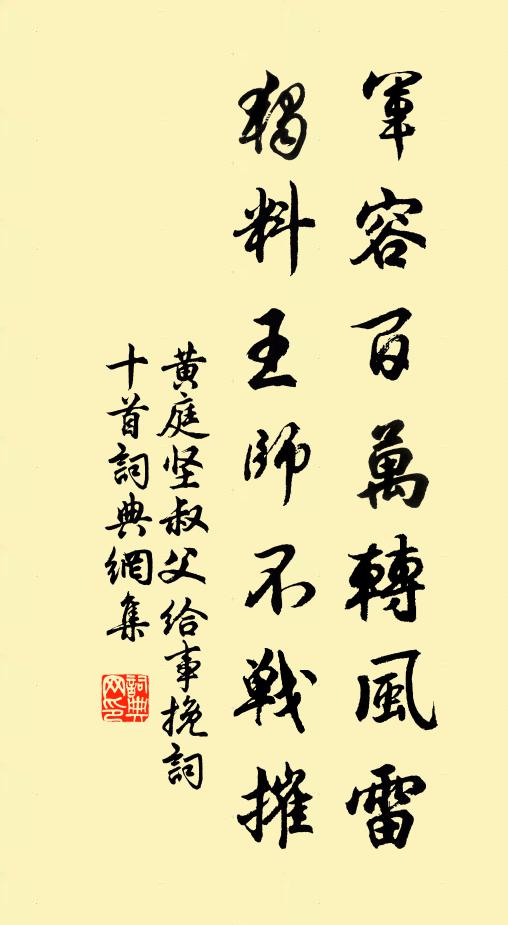 軍容百萬轉風雷
獨料王師不戰摧
黄庭坚叔父给事挽詞
十首詞典網集
詞典
网印